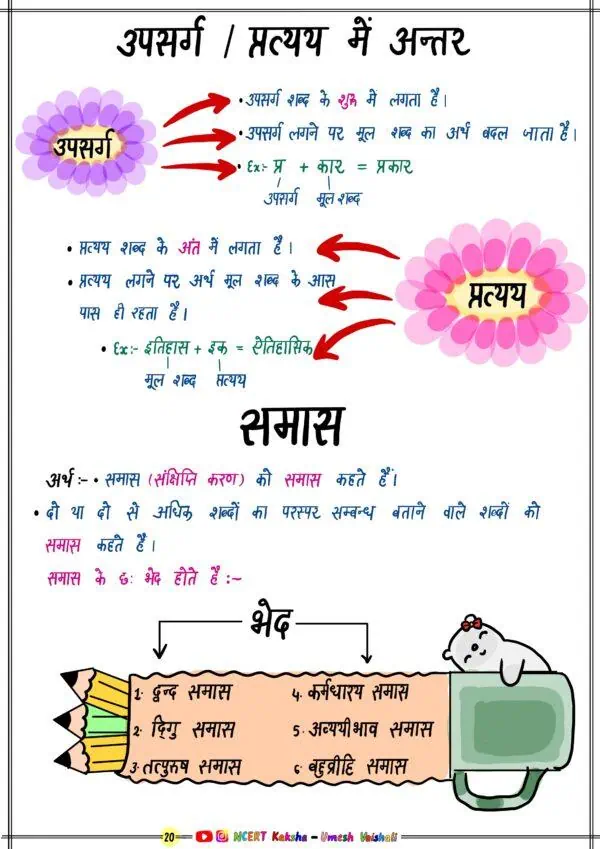 उपसर्ग / प्रत्यय में अन्तर
उपसर्ग
• उपसर्ग शब्द के शुरू में लगता है।
• उपसर्ग लगने पर मूल शब्द का अर्थ बदल जाता है।
• Ex:- प्र + कार = प्रकार
उपसर्ग मूल शब्द
• प्रत्यय शब्द के अंत में लगता है।
• प्रत्यय लगने पर अर्थ मूल शब्द के आस
पास ही रहता है।
प्रत्यय
• Ex:- इतिहास + इक = ऐतिहासिक
मूल शब्द प्रत्यय
समास
अर्थ :- • समास (संक्षिप्ति करण) को समास कहते हैं।
• दो या दो से अधिक शब्दों का परस्पर सम्बन्ध बताने वाले शब्दों को
समास कहते है।
समास के छः भेद होते है :~
भेद
1. द्वन्द समास
2. दिगु समास
3. तत्पुरुष समास
4. कर्मधारय समास
5. अव्ययीभाव समास
6. बहुव्रीहि समास
20 NCERT Kaksha – Umesh Vaishali